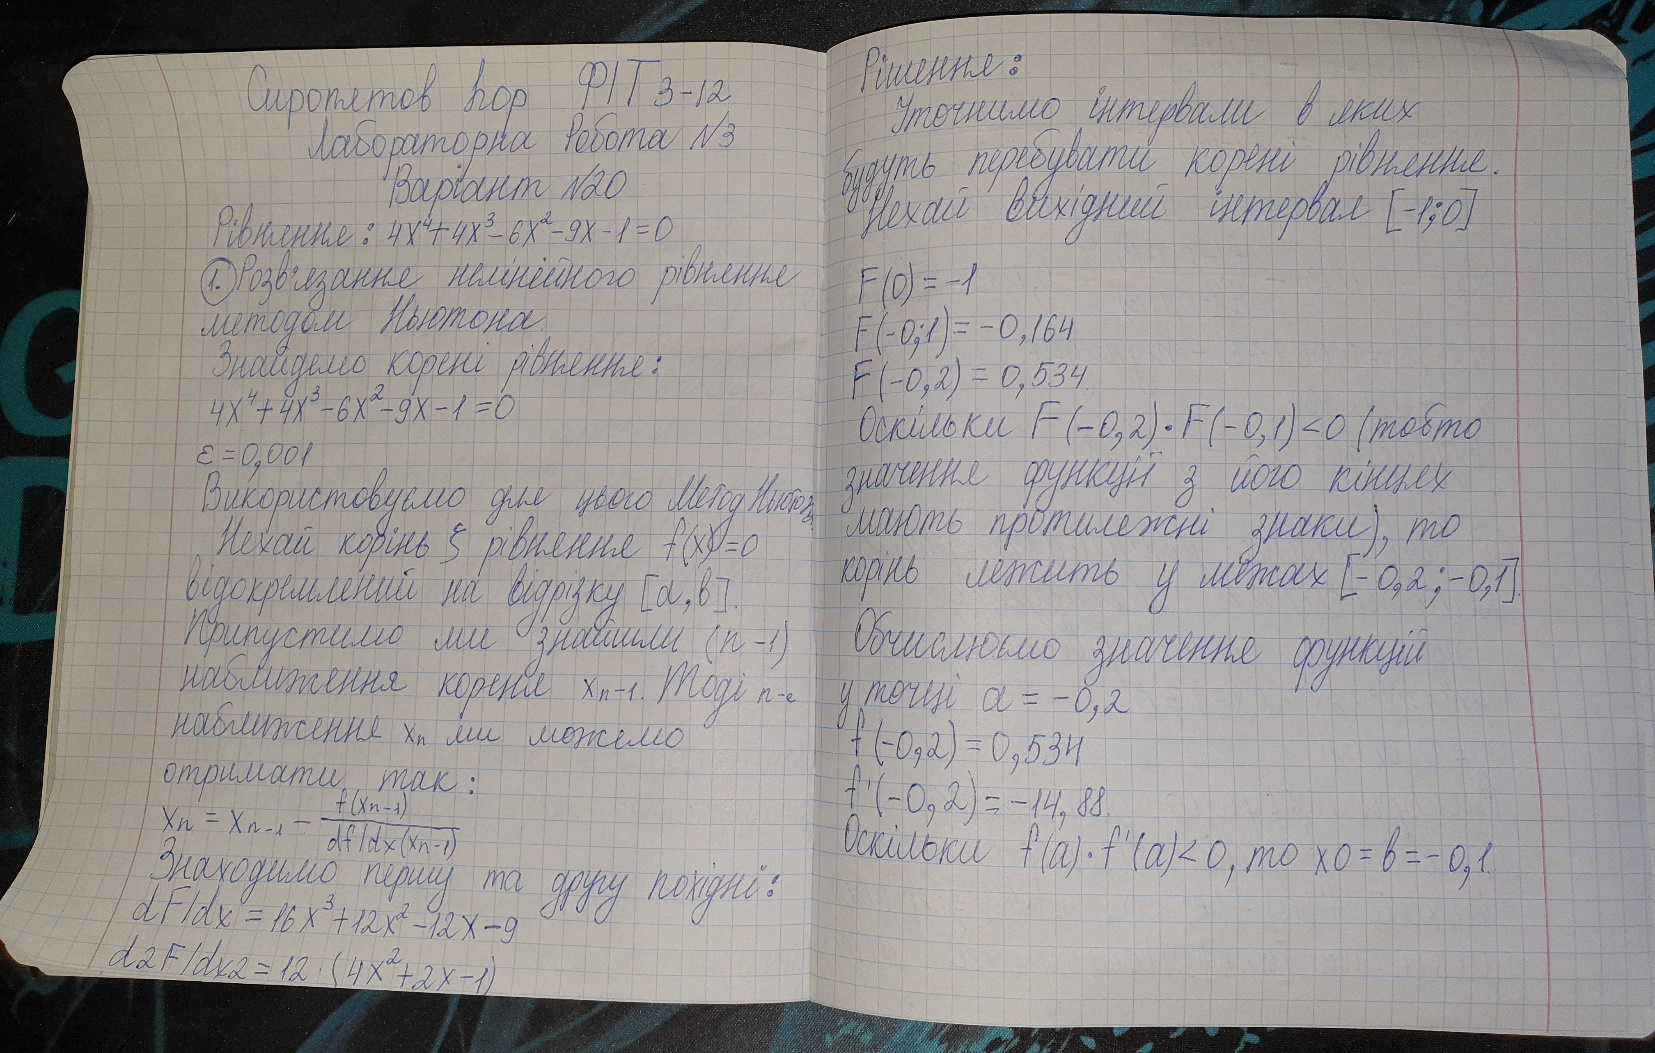 Сиропятов Єгор ФІТ 3-12
Лабораторна Робота №3
Варіант №20
Рівняння: 4x⁴+4x³-6x²-9x-1=0
1. Розв'язання нелінійного рівняння
методом Ньютона.
Знайдемо корені рівняння:
4x⁴+4x³-6x²-9x-1=0
ε=0,001
Використовуємо для цього Метод
Нехай корінь ξ рівняння f(x)=0
відокремлений на відрізку [a,b].
Припустимо ми знайшли (n-1)
наближення кореня xn-1. Тоді n-е
наближення xn ми можемо
отримати так:
xn = xn-1 - f(xn-1) / df/dx(xn-1)
Знаходимо першу та другу похідні:
dF/dx = 16x³+12x²-12x-9
d2F/dx2 = 12·(4x²+2x-1)
Рішення:
Уточнимо інтервали в яких
будуть перебувати корені рівняння.
Нехай вихідний інтервал [-1;0]
F(0)=-1
F(-0;1)=-0,164
F(-0,2)=0,534
Оскільки F(-0,2)·F(-0,1)<0 (тобто
значення функції з його кінцях
мають протилежні знаки), то
корінь лежить у межах [-0,2;-0,1].
Обчислюємо значення функцій
у точці a = -0,2
f(-0,2)=0,534
f'(-0,2)=-14,88.
Оскільки f(a)·f''(a)<0, то x0=b=-0,1.